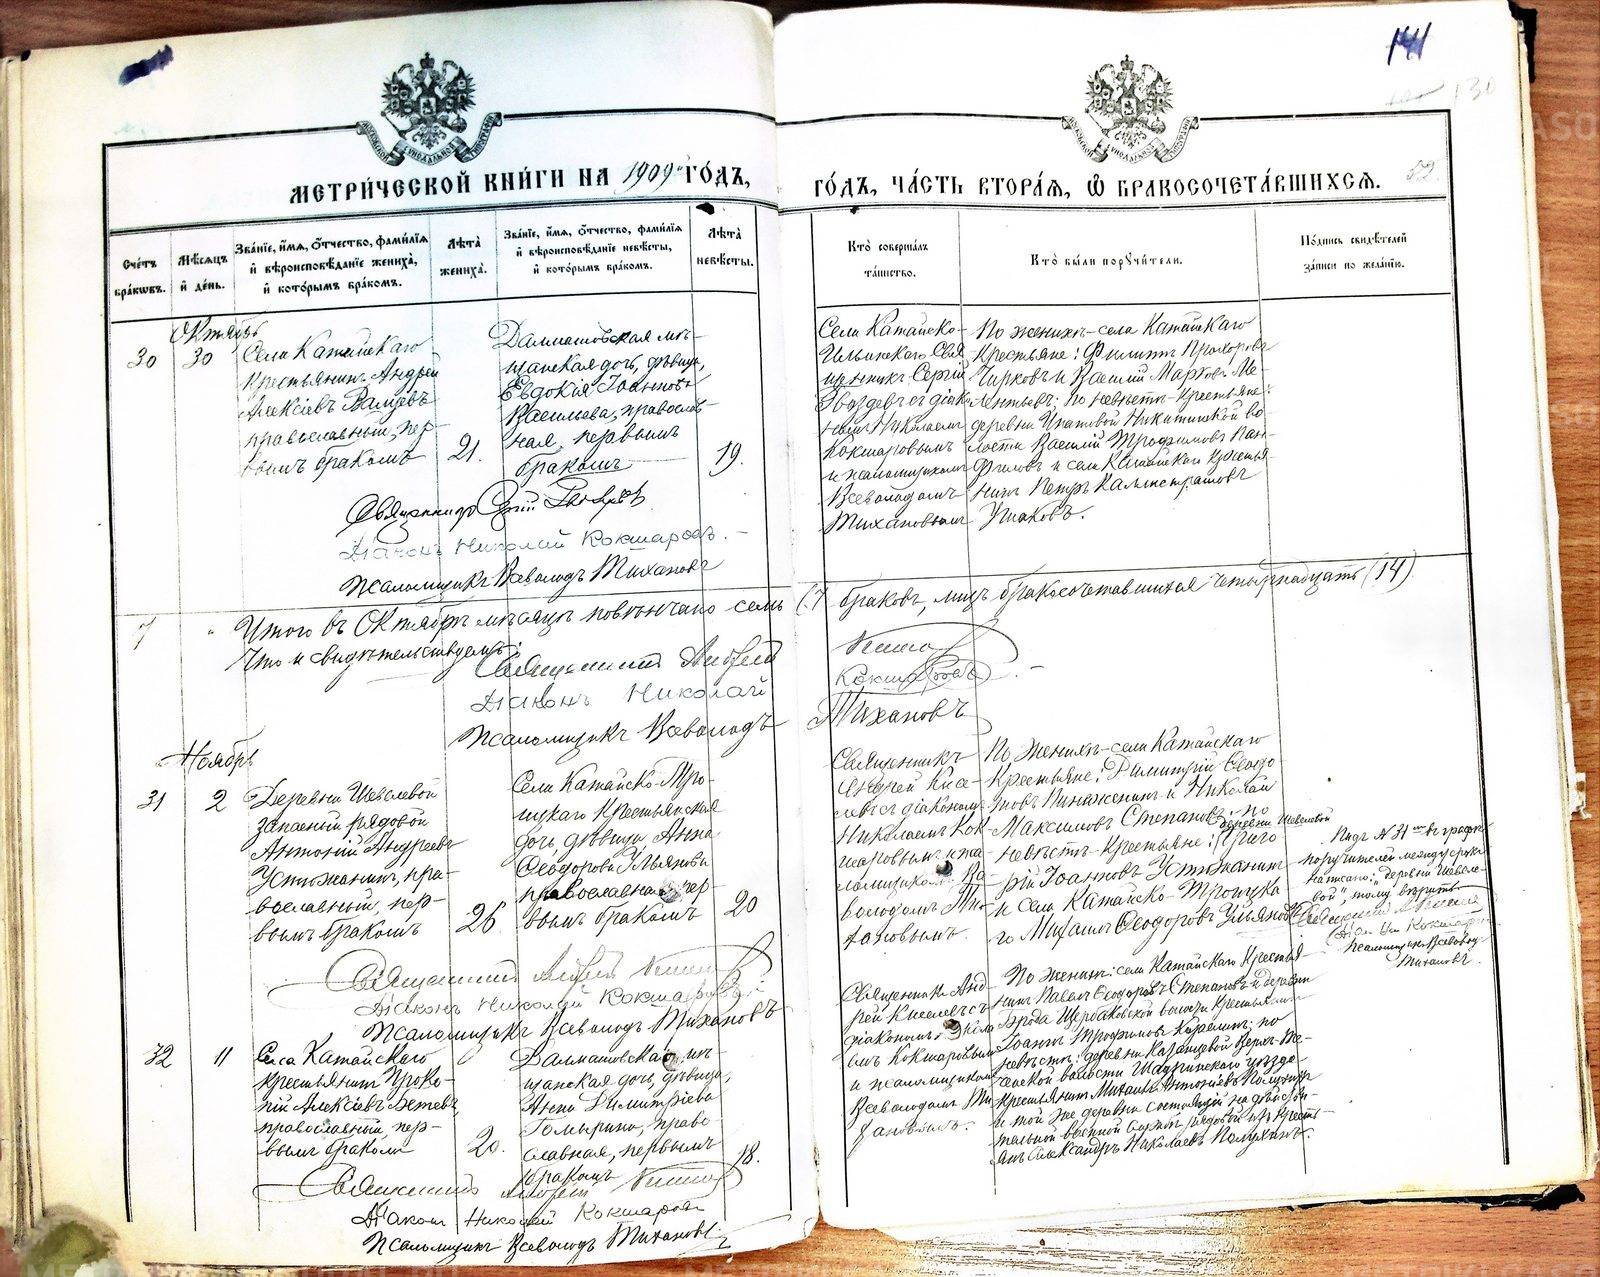 141
130
МЕТРИ́ЧЕСКОЙ КНИ́ГИ НА 1909 ГО́ДЪ,
ГО́ДЪ, ЧА́СТЬ ВТОРА́Я, Ѡ БРАКОСОЧЕТА́ВШИХСЯ.
Сче́тъ бра́кѡвъ.
Мѣ́сяцъ и де́нь.
Зва́нїе, и́мя, о́тчество, фами́лїя
и вѣроисповѣ́данїе жениха́,
и кото́рымъ бра́комъ.
Лѣта̀ жениха̀.
Зва́нїе, и́мя, о́тчество, фами́лїя
и вѣроисповѣ́данїе невѣ́сты,
и кото́рымъ бра́комъ.
Лѣта̀ невѣ́сты.
Кто̀ соверша́лъ
та́инство.
Кто̀ бы́ли порꙋчи́тели.
По́дпись свидѣ́телей
за́писи по жела́нїю.
Октябрь
30
30
Села Катайскаго
крестьянинъ Андрей
Алексіевъ
православный, пер-
вымъ бракомъ
21.
Далматовская мѣ-
щанская дочь, дѣвица,
Евдокія Іоаннова
Васильева, православ-
ная, первымъ
бракомъ
19.
Села Катайско-
Ильинскаго Свя
щенникъ Сергій
съ діако
номъ Николаемъ
Кокшаровымъ
и псаломщикомъ
Всеволодомъ
Тихановымъ
По женихѣ - села Катайскаго
Крестьяне: Филиппъ Прохоровъ
Чирковъ и Василій Марковъ Ме-
лентьевъ; по невѣстѣ - крестьяне:
деревни Ипатовой Никитинской во
лости Василій Трофимовъ Пан-
филовъ и села Катайскаго крестья-
нинъ Петръ Калистратовъ
Ушаковъ.
Священникъ Сергій
Діаконъ Николай Кокшаровъ.
Псаломщикъ Всеволодъ Тихановъ
7 " Итого въ Октябрѣ мѣсяцѣ повѣнчано семь (7 браковъ, лицъ бракосочетавшихся четырнадцать (14)
Что и свидѣтельствуемъ:
Священникъ Андрей
Діаконъ Николай Кокшаровъ.
Псаломщикъ Всеволодъ Тихановъ
Ноябрь
31
2
Деревни Шевелевой
запасный рядовой
Антоній Андреевъ
Устюжанинъ, пра-
вославный, пер-
вымъ бракомъ
26
Села Катайско-Тро-
ицкаго Крестьянская
дочь, дѣвица, Анна
Ѳеодорова Ульянова
православная, пер-
вымъ бракомъ
20
Священникъ
Андрей Кис-
левъ съ діакономъ
Николаемъ Кок-
шаровымъ и пса-
ломщикомъ Все-
володомъ Ти-
хановымъ.
По женихѣ - села Катайскаго
Крестьяне: Димитрій Ѳеодо
товъ Пинженинъ и Николай
Максимовъ Степановъ; по
деревни Шевелевой
невѣстѣ - крестьяне: Григо
рій Іоанновъ Устюжанинъ
и села Катайско-Троицка
го Михаилъ Ѳеодоровъ Ульяновъ
Подъ № 31 въ графѣ
поручителей между строкъ
написано: "деревни Шевеле-
вой", тому вѣрить
Священникъ
Діаконъ Кокшаровъ
Псаломщикъ Всеволодъ
Тихановъ
Священникъ Андрей
Діаконъ Николай Кокшаровъ
Псаломщикъ Всеволодъ Тихановъ
32
11
Села Катайскаго
крестьянинъ Проко-
пій Алексіевъ
православный, пер-
вымъ бракомъ
20.
Далматовская мѣ-
щанская дочь, дѣвица,
Анна Димитріева
православная, первымъ
бракомъ
18.
Священникъ Анд
рей Киселевъ съ
діакономъ Нікола
емъ Кокшаровымъ
и псаломщикомъ
Всеволодомъ Ти
хановымъ.
По женихѣ: села Катайскаго Крестья-
нинъ Павелъ Ѳеодоровъ Степановъ и деревни
Щербаковской волости крестьянинъ
Іоаннъ Трофимовъ Корелинъ; по
невѣстѣ: деревни Казанцевой Верх-Те-
ченской волости Шадринскаго уѣзда
крестьянинъ Михаилъ Антоніевъ Полухинъ
и той же деревни состоящій на дѣйстви-
тельной военной службѣ рядовой изъ кресть-
янъ Александръ Николаевъ Полухинъ.
Священникъ Андрей
Діаконъ Николай Кокшаровъ
Псаломщикъ Всеволодъ Тихановъ